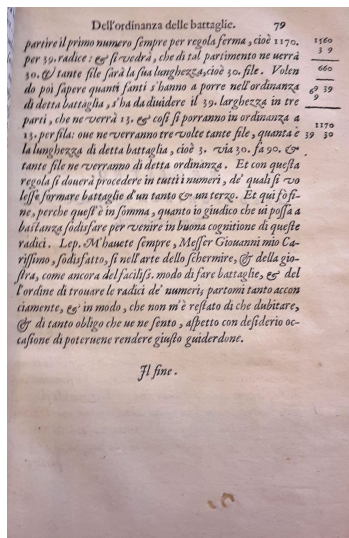 Dell'ordinanza delle battaglie. 79
partire il primo numero sempre per regola ferma, cioè 1170.
per 39. radice: & si vedrà, che di tal partimento ne uerrà
30. & tante file sarà la sua lunghezza, cioè 30. file. Volen
do poi sapere quanti fanti s'hanno a porre nell'ordinanza
di detta battaglia, s'ha da diuidere il 39. larghezza in tre
parti, che ne verrà 13. & così si porranno in ordinanza a
13. per fila: oue ne verranno tre volte tante file, quanta è
la lunghezza di detta battaglia, cioè 3. via 30. fa 90. &
tante file ne verranno di detta ordinanza. Et con questa
regola si douerà procedere in tutti i numeri, de' quali si vo
lesse formare battaglie d'un tanto & un terzo. Et qui fò fi-
ne, perche quest'è in somma, quanto io giudico che ui possa a
bastanza sodisfare per venire in buona cognitione di queste
radici. Lep. M'hauete sempre, Messer Giouanni mio Ca-
rissimo, sodisfatto, sì nell'arte dello schermire, & della gio-
stra, come ancora del faciliss. modo di fare battaglie, & del
l'ordine di trouare le radici de' numeri; partomi tanto accon
ciamente, & in modo, che non m'è restato di che dubitare,
& di tanto obligo che ue ne sento, aspetto con desiderio oc-
casione di poteruene rendere giusto guiderdone.
Il fine.
1560
3 9
660
69 39
9
1170
39 30